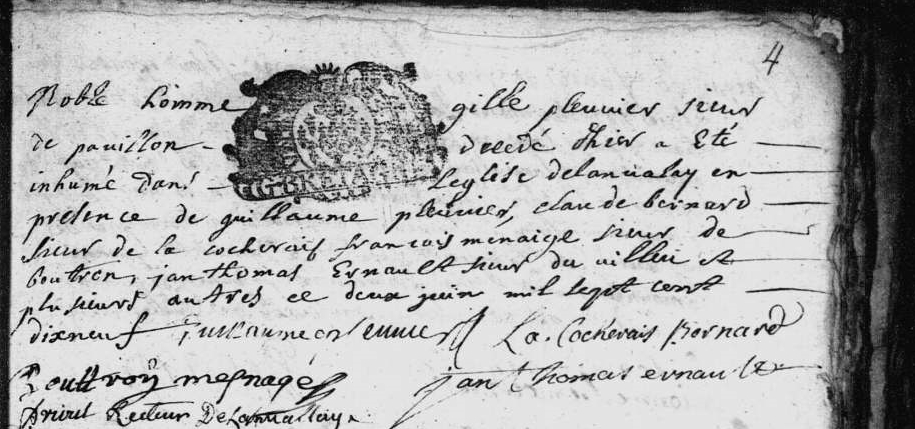 4
Noble homme gille pleuvier sieur
de pavillon decedé Thier a Eté
inhumé dans Leglise delanvalay en
presence de guillaume pleuvier, claude bernard
sieur de la cocherais francois menaige sieur de
boutron, jan thomas Ernault sieur du et
plusieurs autres ce deux juin mil sept cent
dixneuf Guillaume La. Cocherais Bernard
mesnagé jan thomas ernault
Recteur DeLanvallay